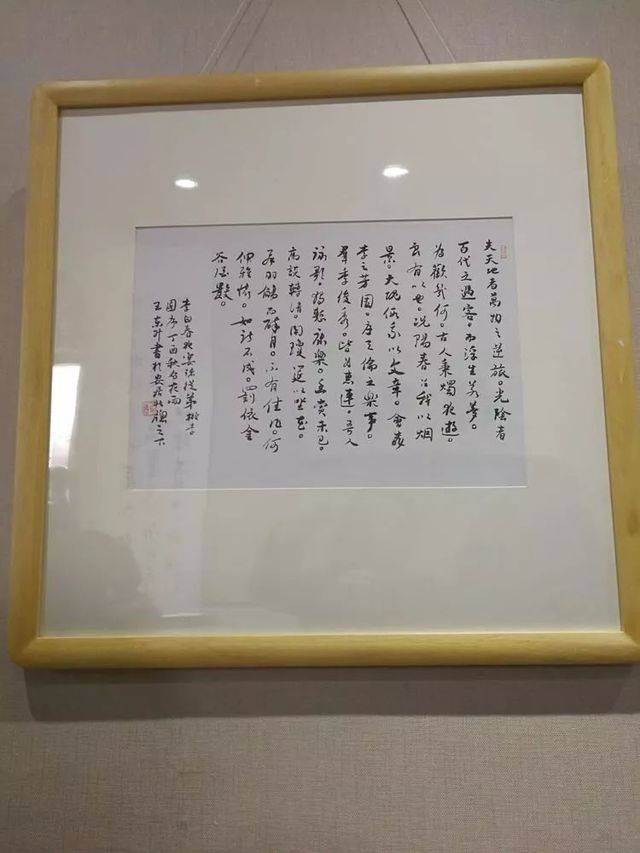 夫天地者萬物之逆旅。光陰者
百代之過客。而浮生若夢。
為歡幾何。古人秉燭夜遊。
良有以也。況陽春召我以烟
景。大塊假我以文章。會桃
李之芳園。序天倫之樂事。
羣季俊秀。皆為惠連。吾人
詠歌。獨慙康樂。幽賞未已。
高談轉清。開瓊筵以坐花。
飛羽觴而醉月。不有佳作。何
伸雅懷。如詩不成。罰依金
谷酒數。
李白春夜宴從弟桃李
園序丁酉秋夜雨
王書於之下